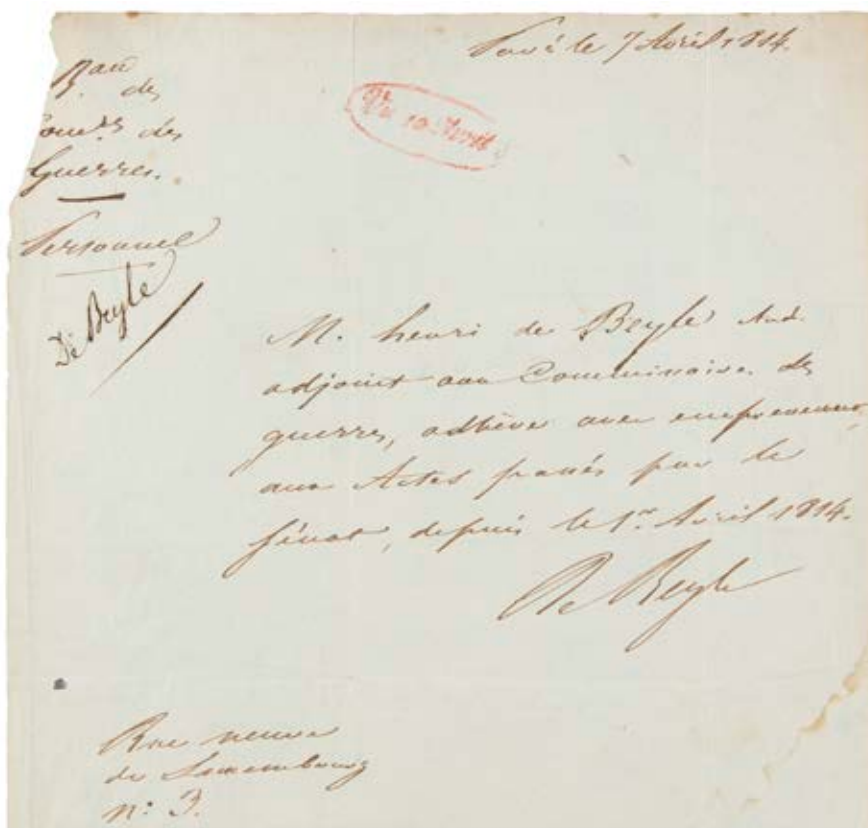 Paris le 7 Avril 1814.
Bau des
Comres des
Guerres.
Personnel
De Beyle
10 Avril
M. henri de Beyle Aud.
adjoint aux Commissaires des
guerres, adhère avec empressement
aux Actes passés par le
Sénat, depuis le 1er Avril 1814.
De Beyle
Rue neuve
de Luxembourg
n: 3.